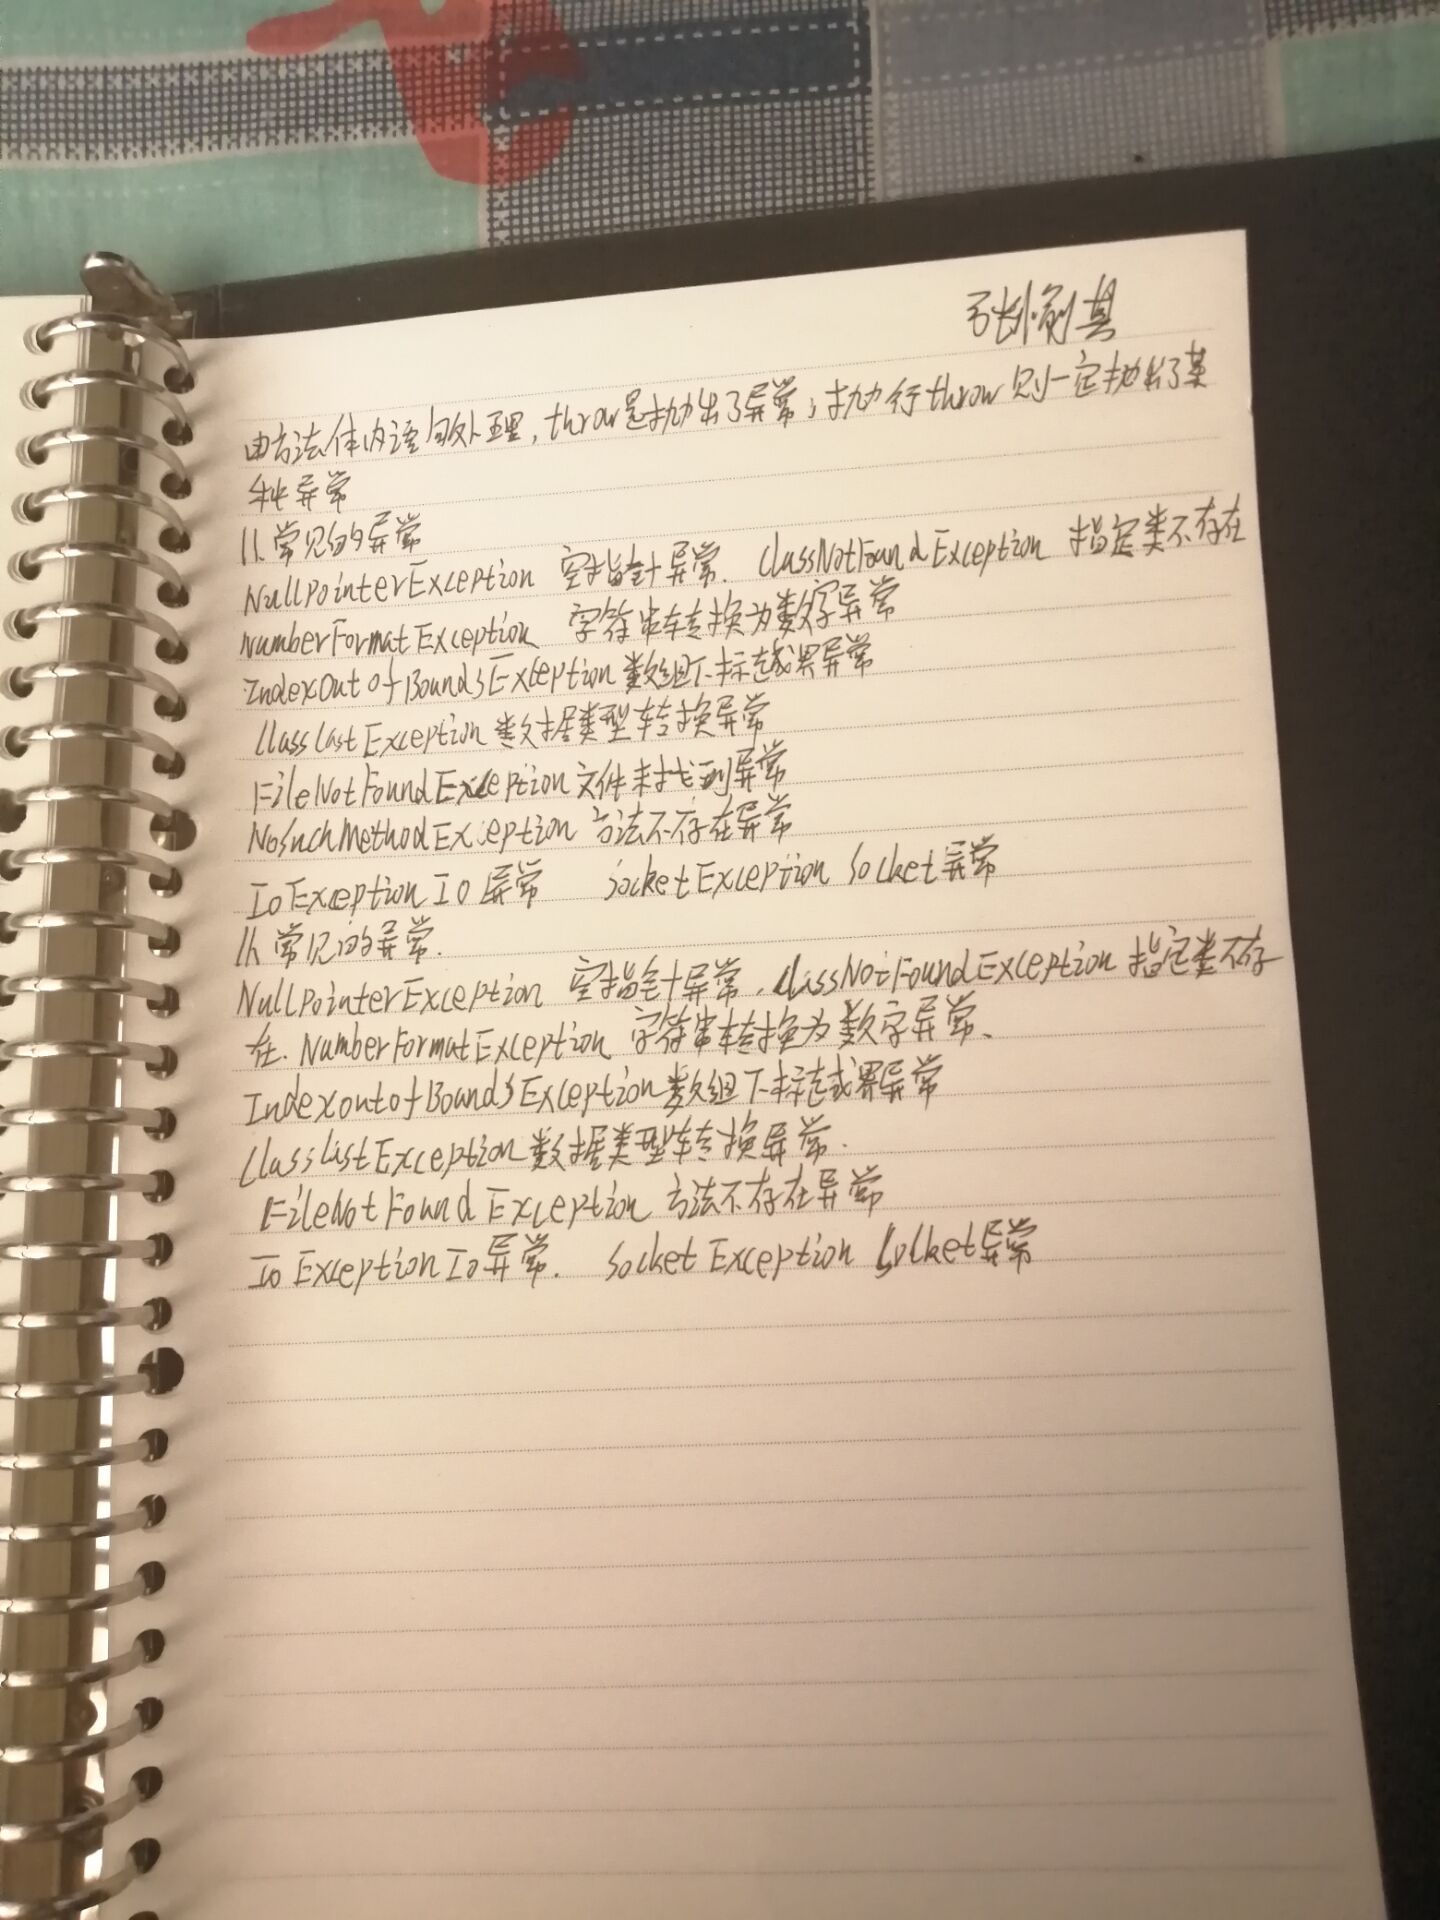 由方法体内语句处理，throw是抛出了异常，执行throw则一定抛出了某
种异常
11、常见的异常
NullPointerException 空指针异常. ClassNotFoundException 指定类不存在
NumberFormatException 字符串转换为数字异常
IndexOutOfBoundsException 数组下标越界异常
ClassCastException 数据类型转换异常
FileNotFoundException 文件未找到异常
NoSuchMethodException 方法不存在异常
IoException Io 异常 SocketException Socket异常
11、常见的异常.
NullPointerException 空指针异常. ClassNotFoundException 指定类不存
在. NumberFormatException 字符串转换为数字异常、
IndexoutofBoundsException 数组下标越界异常
ClassCastException 数据类型转换异常.
FileNotFoundException 方法不存在异常
Io Exception Io异常. Socket Exception Socket异常